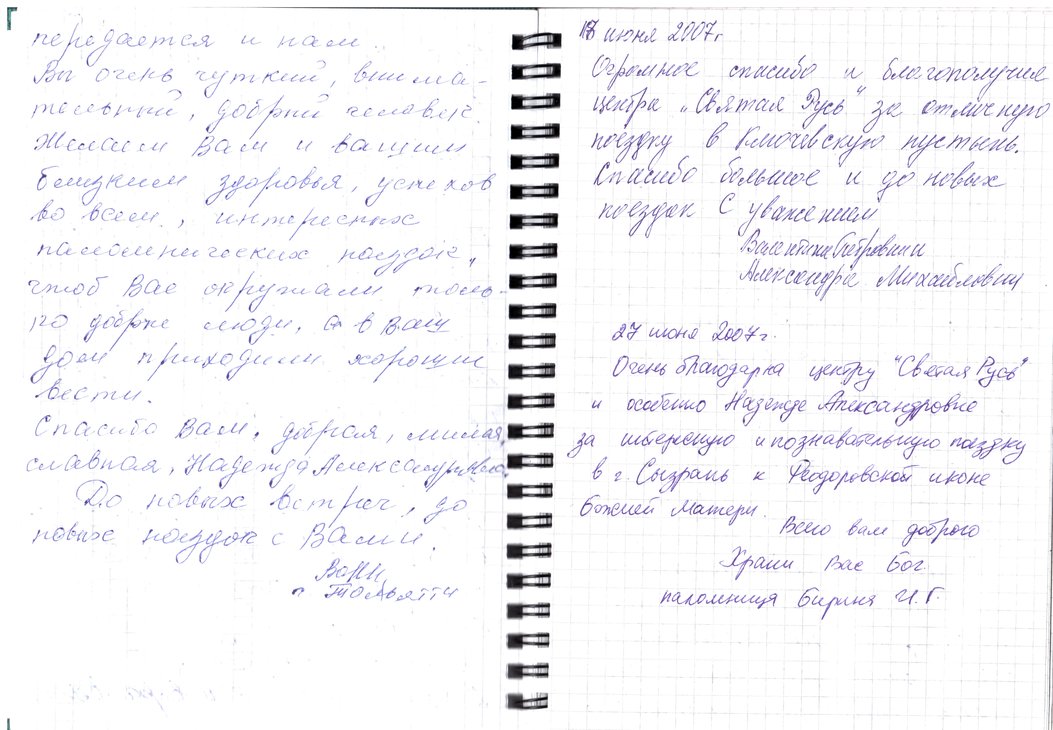 передается и нам.
Вы очень чуткий, внима-
тельный, добрый человек.
Желаем Вам и вашим
близким здоровья, успехов
во всем, интересных
паломнических поездок,
чтоб Вас окружали толь-
ко добрые люди, а в Ваш
дом приходили хорошие
вести.
Спасибо Вам, добрая, милая,
славная, Надежда Александровна.
До новых встреч, до
новых поездок с Вами.
г. Тольятти
июня 2007г
Огромное спасибо и благополучия
центра "Святая Русь" за отличную
поездку в Ключевскую пустынь.
Спасибо большое и до новых
поездок С уважением
Валентина Петровны
Александра Михайловны
27 июня 2007г.
Очень благодарна центру "Святая Русь"
и особенно Надежде Александровне
за интересную и познавательную поездку
в г. Сызрань к Феодоровской иконе
Божией Матери.
Всего вам доброго
Храни Вас Бог.
паломница И. Г.